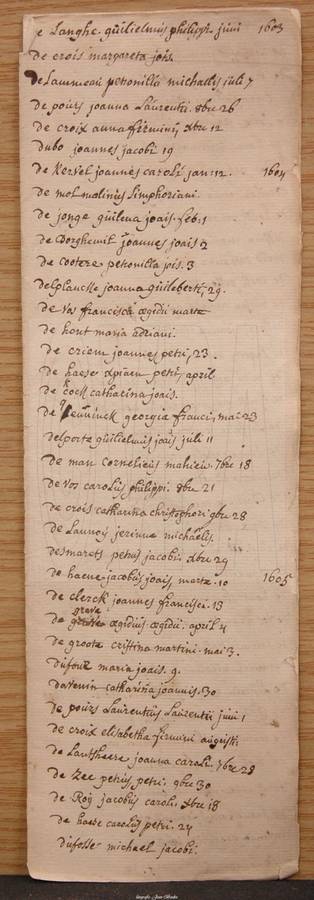 de Langhe guilielmus philippi juni 1603
de crois margareta jois.
de Lammeau petronilla michaelis juli 7
de pours joanna Laurentii 8bre 26
de croix anna firmini xbre 12
dubo joannes jacobi 19
de Kersel joannes caroli jan: 12. 1604
de mol malinus simphoriani.
de jonge guilena joais. feb: 1
de Dorghemit joannes joais 2
de cootere petronilla jois. 3
delplancke joanna guileberti, 29.
de vos francisca ægidii marte
de hont maria adriani.
de criem joannes petri, 23.
de haese petri, april
de cock catharina joais.
de georgia franci, mai 23
delporte guilielmus joais juli 11
de man cornelius mahieu. 7bre 18
de vos carolus philippi. 8bre 21
de crois catharina christophori 9bre 28
de Launoÿ jerinne michaelis.
desmarets petrus jacobi. xbre 29
de haene jacobus joais, marte. 10 1605
de clerck joannes francisci. 13
de greve ægidius ægidii. april 4
de groote cristina martini. mai 3.
dufour maria joais. 9.
davenin catharina joannis. 30
de pours Laurentius Laurentii juni 1
de croix elisabetha firmini augusti.
de Lantsheere joanna caroli. 7bre 28
de zee petrus petri. 9bre 30
de Roÿ jacobus caroli. xbre 18
de haese carolus petri. 24
dufosse michael jacobi.